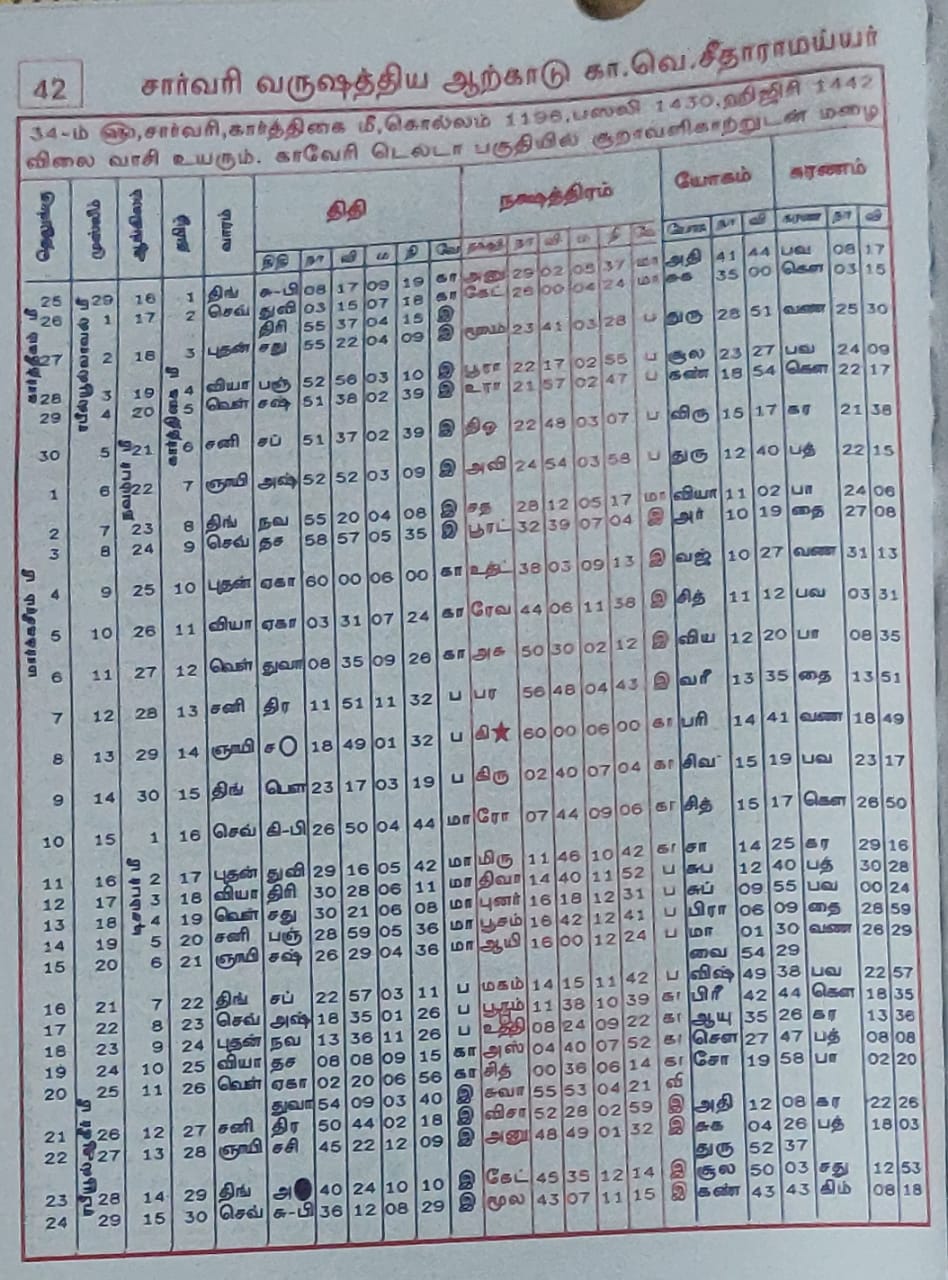 42
சார்வரி வருஷத்திய ஆற்காடு கா.வெ.சீதாராமய்யர்
34-ம் ௵,சார்வரி,கார்த்திகை மீ,கொல்லம் 1196,பஸலி 1430,ஹிஜிரி 1442
விலை வாசி உயரும். காவேரி டெல்டா பகுதியில் சூறாவளிகாற்றுடன் மழை
திதி நக்ஷத்திரம் யோகம் கரணம்
திதி நா வி ம நி வே நக்ஷ நா வி ம நி வே யோக நா வி கரண நா வி
25 29 16 1 திங் சு-பி 08 17 09 19 கா அனு 29 02 05 37 மா அதி 41 44 பவ 08 17
26 1 17 2 செவ் துவி 03 15 07 18 கா கேட் 26 00 04 24 மா சுக 35 00 கௌ 03 15
திரி 55 37 04 15 இ
27 2 18 3 புதன் சது 55 22 04 09 இ மூலம் 23 41 03 28 ப துரு 28 51 வண 25 30
28 3 19 4 வியா பஞ் 52 56 03 10 இ பூரா 22 17 02 55 ப சூல 23 27 பவ 24 09
29 4 20 5 வெள் சஷ் 51 38 02 39 இ உரா 21 57 02 47 ப கண் 18 54 கௌ 22 17
30 5 21 6 சனி சப் 51 37 02 39 இ திஓ 22 48 03 07 ப விரு 15 17 கர 21 38
1 6 22 7 ஞாயி அஷ் 52 52 03 09 இ அவி 24 54 03 58 ப துரு 12 40 பத் 22 15
2 7 23 8 திங் நவ 55 20 04 08 இ சத 28 12 05 17 மா வியா 11 02 பா 24 06
3 8 24 9 செவ் தச 58 57 05 35 இ பூரட் 32 39 07 04 இ அர் 10 19 தை 27 08
4 9 25 10 புதன் ஏகா 60 00 06 00 கா உத்ட் 38 03 09 13 இ வஜ் 10 27 வண 31 13
5 10 26 11 வியா ஏகா 03 31 07 24 கா ரேவ 44 06 11 38 இ சித் 11 12 பவ 03 31
6 11 27 12 வெள் துவா 08 35 09 26 கா அசு 50 30 02 12 இ விய 12 20 பா 08 35
7 12 28 13 சனி திர 11 51 11 32 ப பர 56 48 04 43 இ வரீ 13 35 தை 13 51
8 13 29 14 ஞாயி ச 18 49 01 32 ப கி★ 60 00 06 00 கா பரி 14 41 வண 18 49
9 14 30 15 திங் பௌ 23 17 03 19 ப கிரு 02 40 07 04 கா சிவ 15 19 பவ 23 17
10 15 1 16 செவ் கி-பி 26 50 04 44 மா ரோ 07 44 09 06 கா சித் 15 17 கௌ 26 50
11 16 2 17 புதன் துவி 29 16 05 42 மா மிரு 11 46 10 42 கா சா 14 25 கர 29 16
12 17 3 18 வியா திரி 30 28 06 11 மா திவா 14 40 11 52 ப சுப 12 40 பத் 30 28
13 18 4 19 வெள் சது 30 21 06 08 மா புனர் 16 18 12 31 ப சுப் 09 55 பவ 00 24
14 19 5 20 சனி பஞ் 28 59 05 36 மா பூசம் 16 42 12 41 ப பிரா 06 09 தை 28 59
15 20 6 21 ஞாயி சஷ் 26 29 04 36 மா ஆயி 16 00 12 24 ப மா 01 30 வண 26 29
வை 54 29
16 21 7 22 திங் சப் 22 57 03 11 ப மகம் 14 15 11 42 ப விஷ் 49 38 பவ 22 57
17 22 8 23 செவ் அஷ் 18 35 01 26 ப பூரம் 11 38 10 39 கா பிரீ 42 44 கௌ 18 35
18 23 9 24 புதன் நவ 13 36 11 26 ப உத்தி 08 24 09 22 கா ஆயு 35 26 கர 13 36
19 24 10 25 வியா தச 08 08 09 15 கா அஸ் 04 40 07 52 கா சௌ 27 47 பத் 08 08
20 25 11 26 வெள் ஏகா 02 20 06 56 கா சித் 00 36 06 14 கா சோ 19 58 பா 02 20
துவா 54 09 03 40 இ சுவா 55 53 04 21 வி
21 26 12 27 சனி திர 50 44 02 18 இ விசா 52 28 02 59 இ அதி 12 08 கர 22 26
22 27 13 28 ஞாயி சசி 45 22 12 09 இ அனு 48 49 01 32 இ சுக 04 26 பத் 18 03
துரு 52 37
23 28 14 29 திங் அ 40 24 10 10 இ கேட் 45 35 12 14 இ சூல 50 03 சது 12 53
24 29 15 30 செவ் சு-பி 36 12 08 29 இ மூல 43 07 11 15 இ கண் 43 43 கிம் 08 18